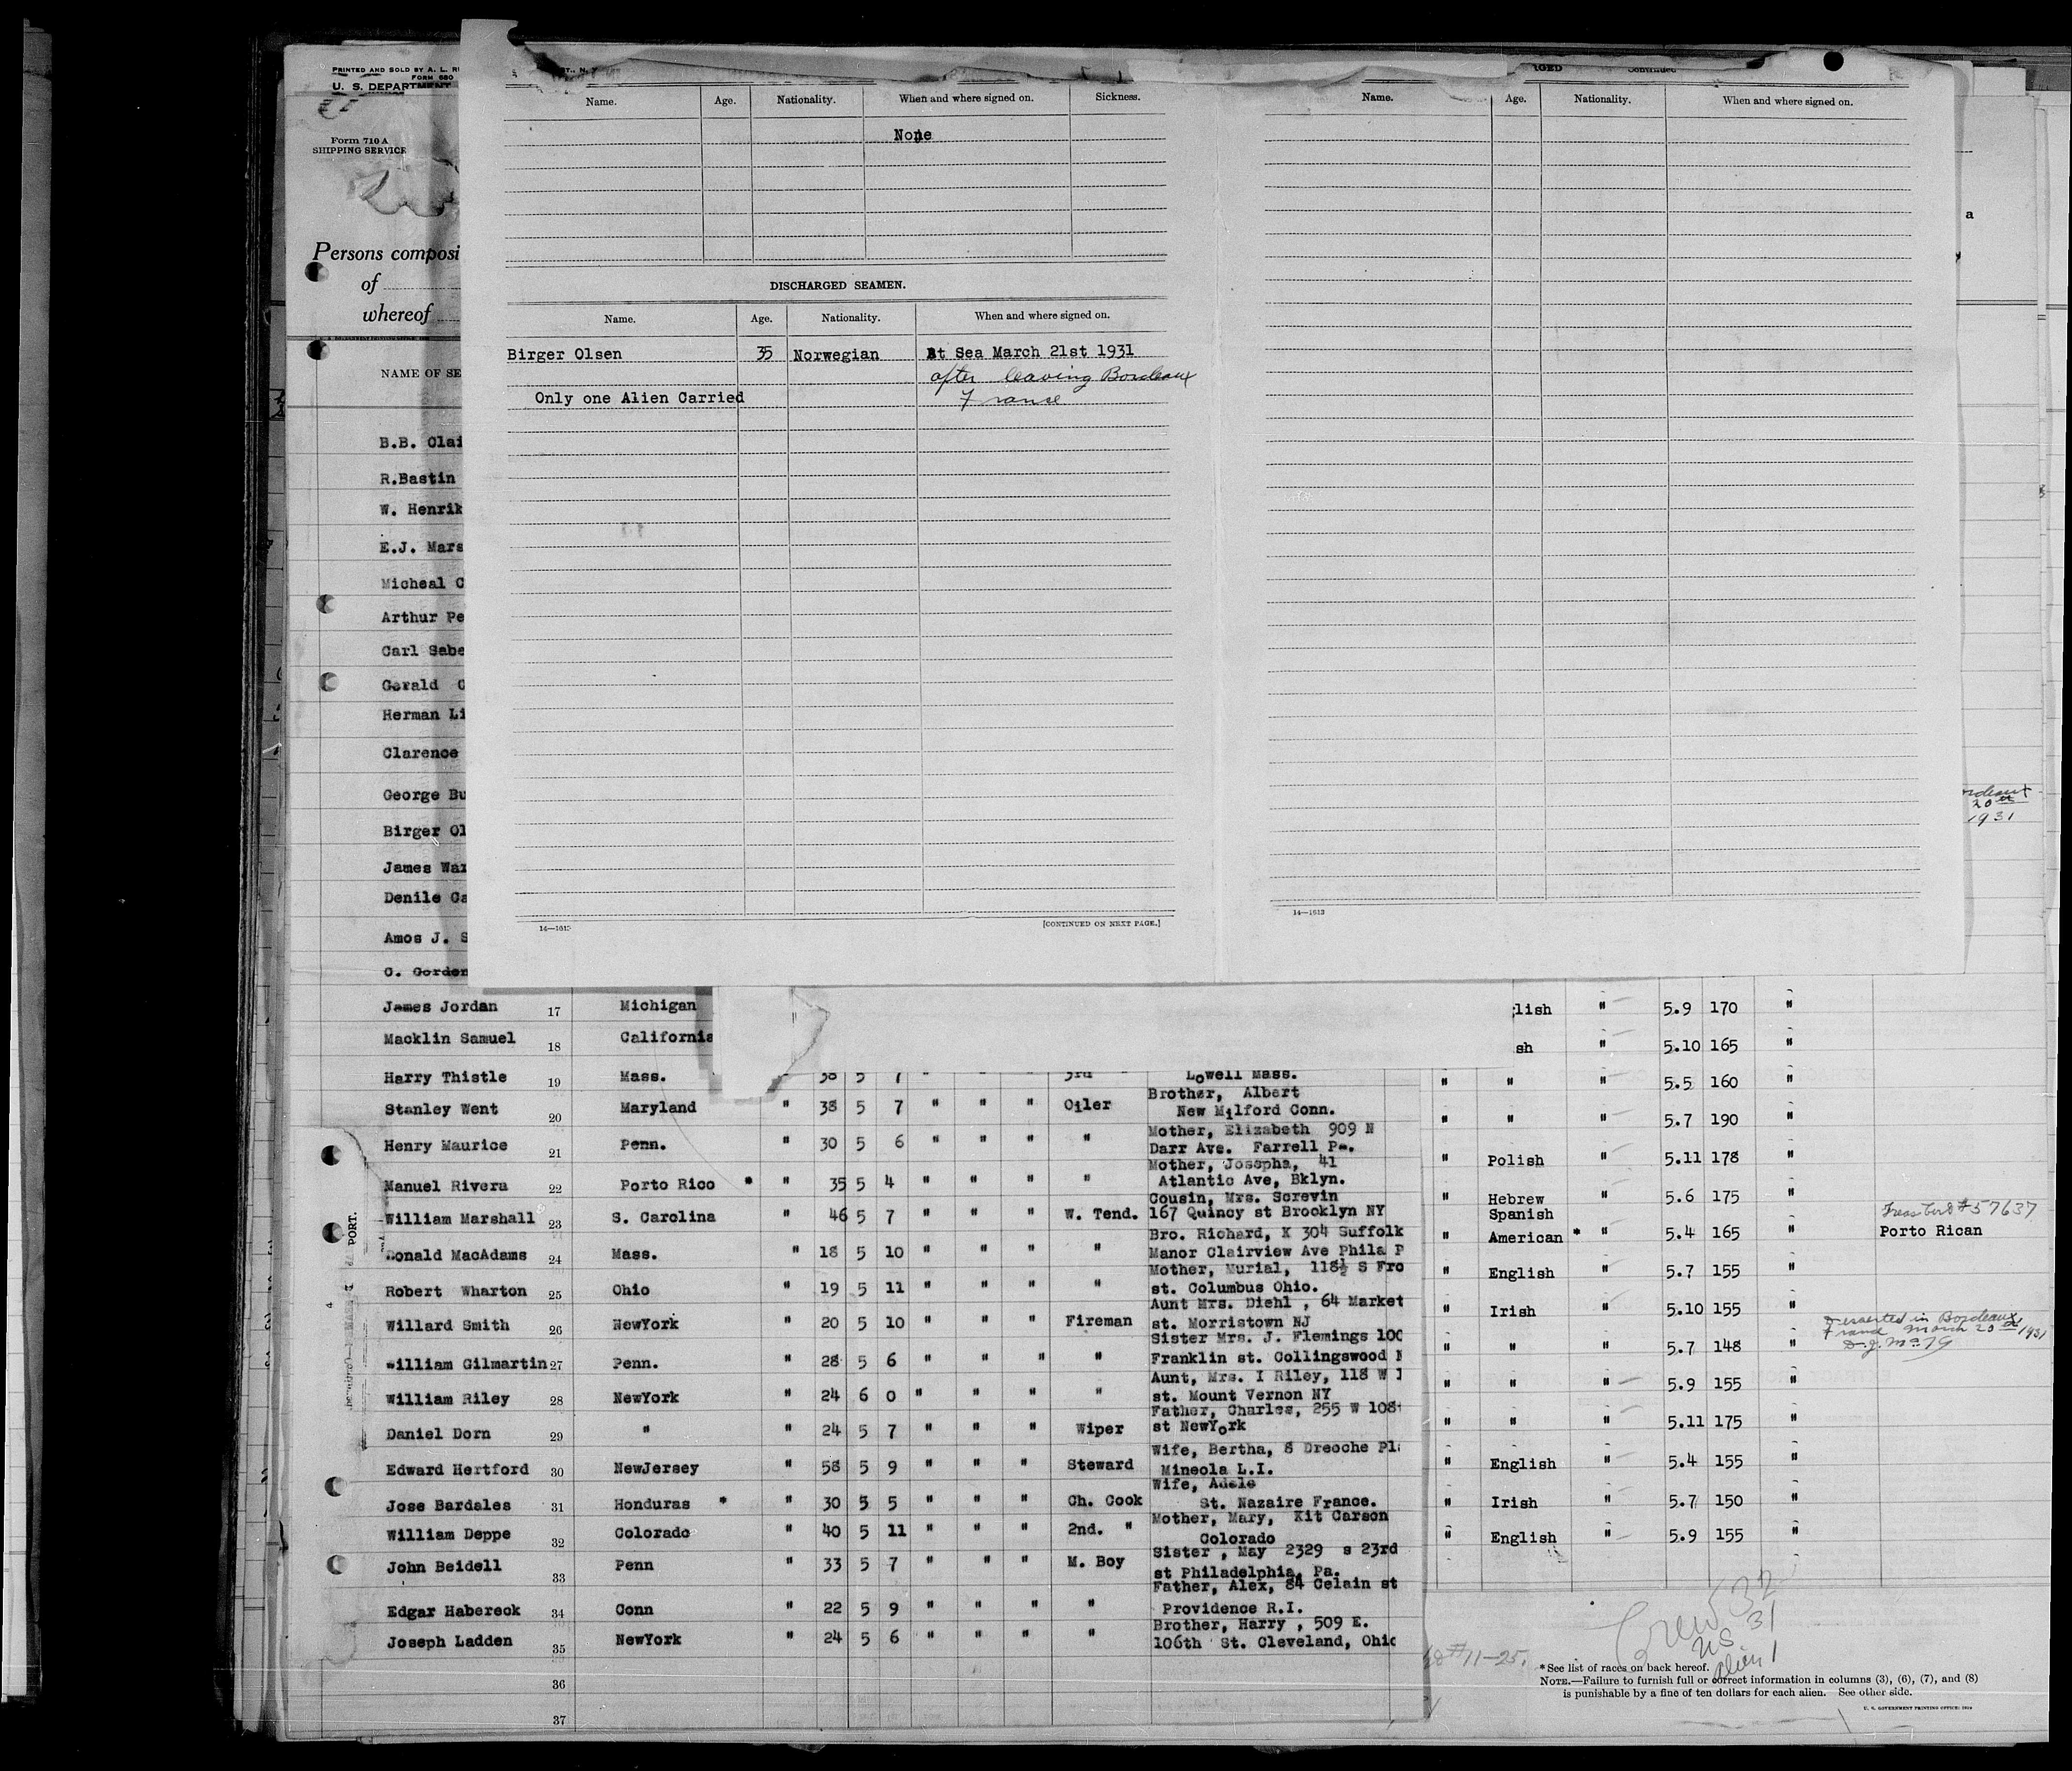 PRINTED AND SOLD BY A. L.
FORM 680
U. S. DEPARTMENT
Form 710 A
SHIPPING SERVICE
Persons composi
of
whereof
NAME OF SE
Name. Age. Nationality. When and where signed on. Sickness.
None
DISCHARGED SEAMEN.
Name. Age. Nationality. When and where signed on.
Birger Olsen 35 Norwegian At Sea March 21st 1931
after leaving Bordeaux
Only one Alien Carried France
14—1613
[CONTINUED ON NEXT PAGE.]
Continued
Name. Age. Nationality. When and where signed on.
14—1613
a
B.B. Clai
R.Bastin
W. Henrik
E.J. Mars
Micheal C
Arthur Pe
Carl Sabe
Gerald C
Herman Li
Clarence
George Bu
Birger Ol
James War
Denile Ca
Amos J. S
C. Gorden
20th
1931
James Jordan 17 Michigan
Macklin Samuel 18 California
Harry Thistle 19 Mass. " 38 5 7 " " " 3rd " Lowell Mass.
Stanley Went 20 Maryland " 38 5 7 " " " Oiler Brother, Albert
New Milford Conn.
Henry Maurice 21 Penn. " 30 5 6 " " " " Mother, Elizabeth 909 N
Darr Ave. Farrell Pa.
Manuel Rivera 22 Porto Rico * " 35 5 4 " " " " Mother, Josepha, 41
Atlantic Ave, Bklyn.
William Marshall 23 S. Carolina " 46 5 7 " " " W. Tend. Cousin, Mrs. Screvin
167 Quincy st Brooklyn NY
Ronald MacAdams 24 Mass. " 18 5 10 " " " " Bro. Richard, K 304 Suffolk
Manor Clairview Ave Phila P
Robert Wharton 25 Ohio " 19 5 11 " " " " Mother, Murial, 118½ S Fro
st. Columbus Ohio.
Willard Smith 26 NewYork " 20 5 10 " " " Fireman Aunt Mrs. Diehl , 64 Market
st. Morristown NJ
William Gilmartin 27 Penn. " 28 5 6 " " " " Sister Mrs. J. Flemings 100
Franklin st. Collingswood N
William Riley 28 NewYork " 24 6 0 " " " " Aunt, Mrs. I Riley, 118 W 1
st. Mount Vernon NY
Daniel Dorn 29 " " 24 5 7 " " " Wiper Father, Charles, 255 W 108
st NewYork
Edward Hertford 30 NewJersey " 58 5 9 " " " Steward Wife, Bertha, 8 Dreoche Pl
Mineola L.I.
Jose Bardales 31 Honduras * " 30 5 5 " " " Ch. Cook Wife, Adele
St. Nazaire France.
William Deppe 32 Colorado " 40 5 11 " " " 2nd. " Mother, Mary, Kit Carson
Colorado
John Beidell 33 Penn " 33 5 7 " " " M. Boy Sister , May 2329 s 23rd
st Philadelphia, Pa.
Edgar Habereck 34 Conn " 22 5 9 " " " " Father, Alex, 84 Celain st
Providence R.I.
Joseph Ladden 35 NewYork " 24 5 6 " " " " Brother, Harry , 509 E.
106th St. Cleveland, Ohio
36
37
PORT.
lish " 5.9 170 "
sh " 5.10 165 "
" " " 5.5 160 "
" " " 5.7 190 "
" Polish " 5.11 178 "
" Hebrew " 5.6 175 "
Spanish
" American * " 5.4 165 " Porto Rican
" English " 5.7 155 "
" Irish " 5.10 155 "
Deserted in Bordeaux
France March 20th 1931
" " " 5.7 148 "
" " " 5.9 155 "
" " " 5.11 175 "
" English " 5.4 155 "
" Irish " 5.7 150 "
" English " 5.9 155 "
Crew 32
US 31
Alien 1
*See list of races on back hereof.
NOTE.—Failure to furnish full or correct information in columns (3), (6), (7), and (8)
is punishable by a fine of ten dollars for each alien. See other side.
U. S. GOVERNMENT PRINTING OFFICE: